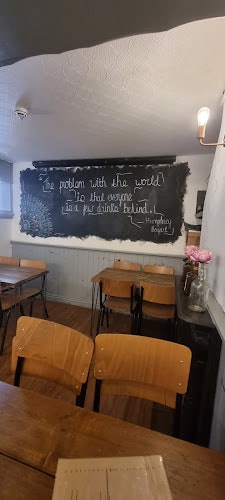 "The problem with the world
is that everyone
is a few drinks behind."
- Humphrey
Bogart